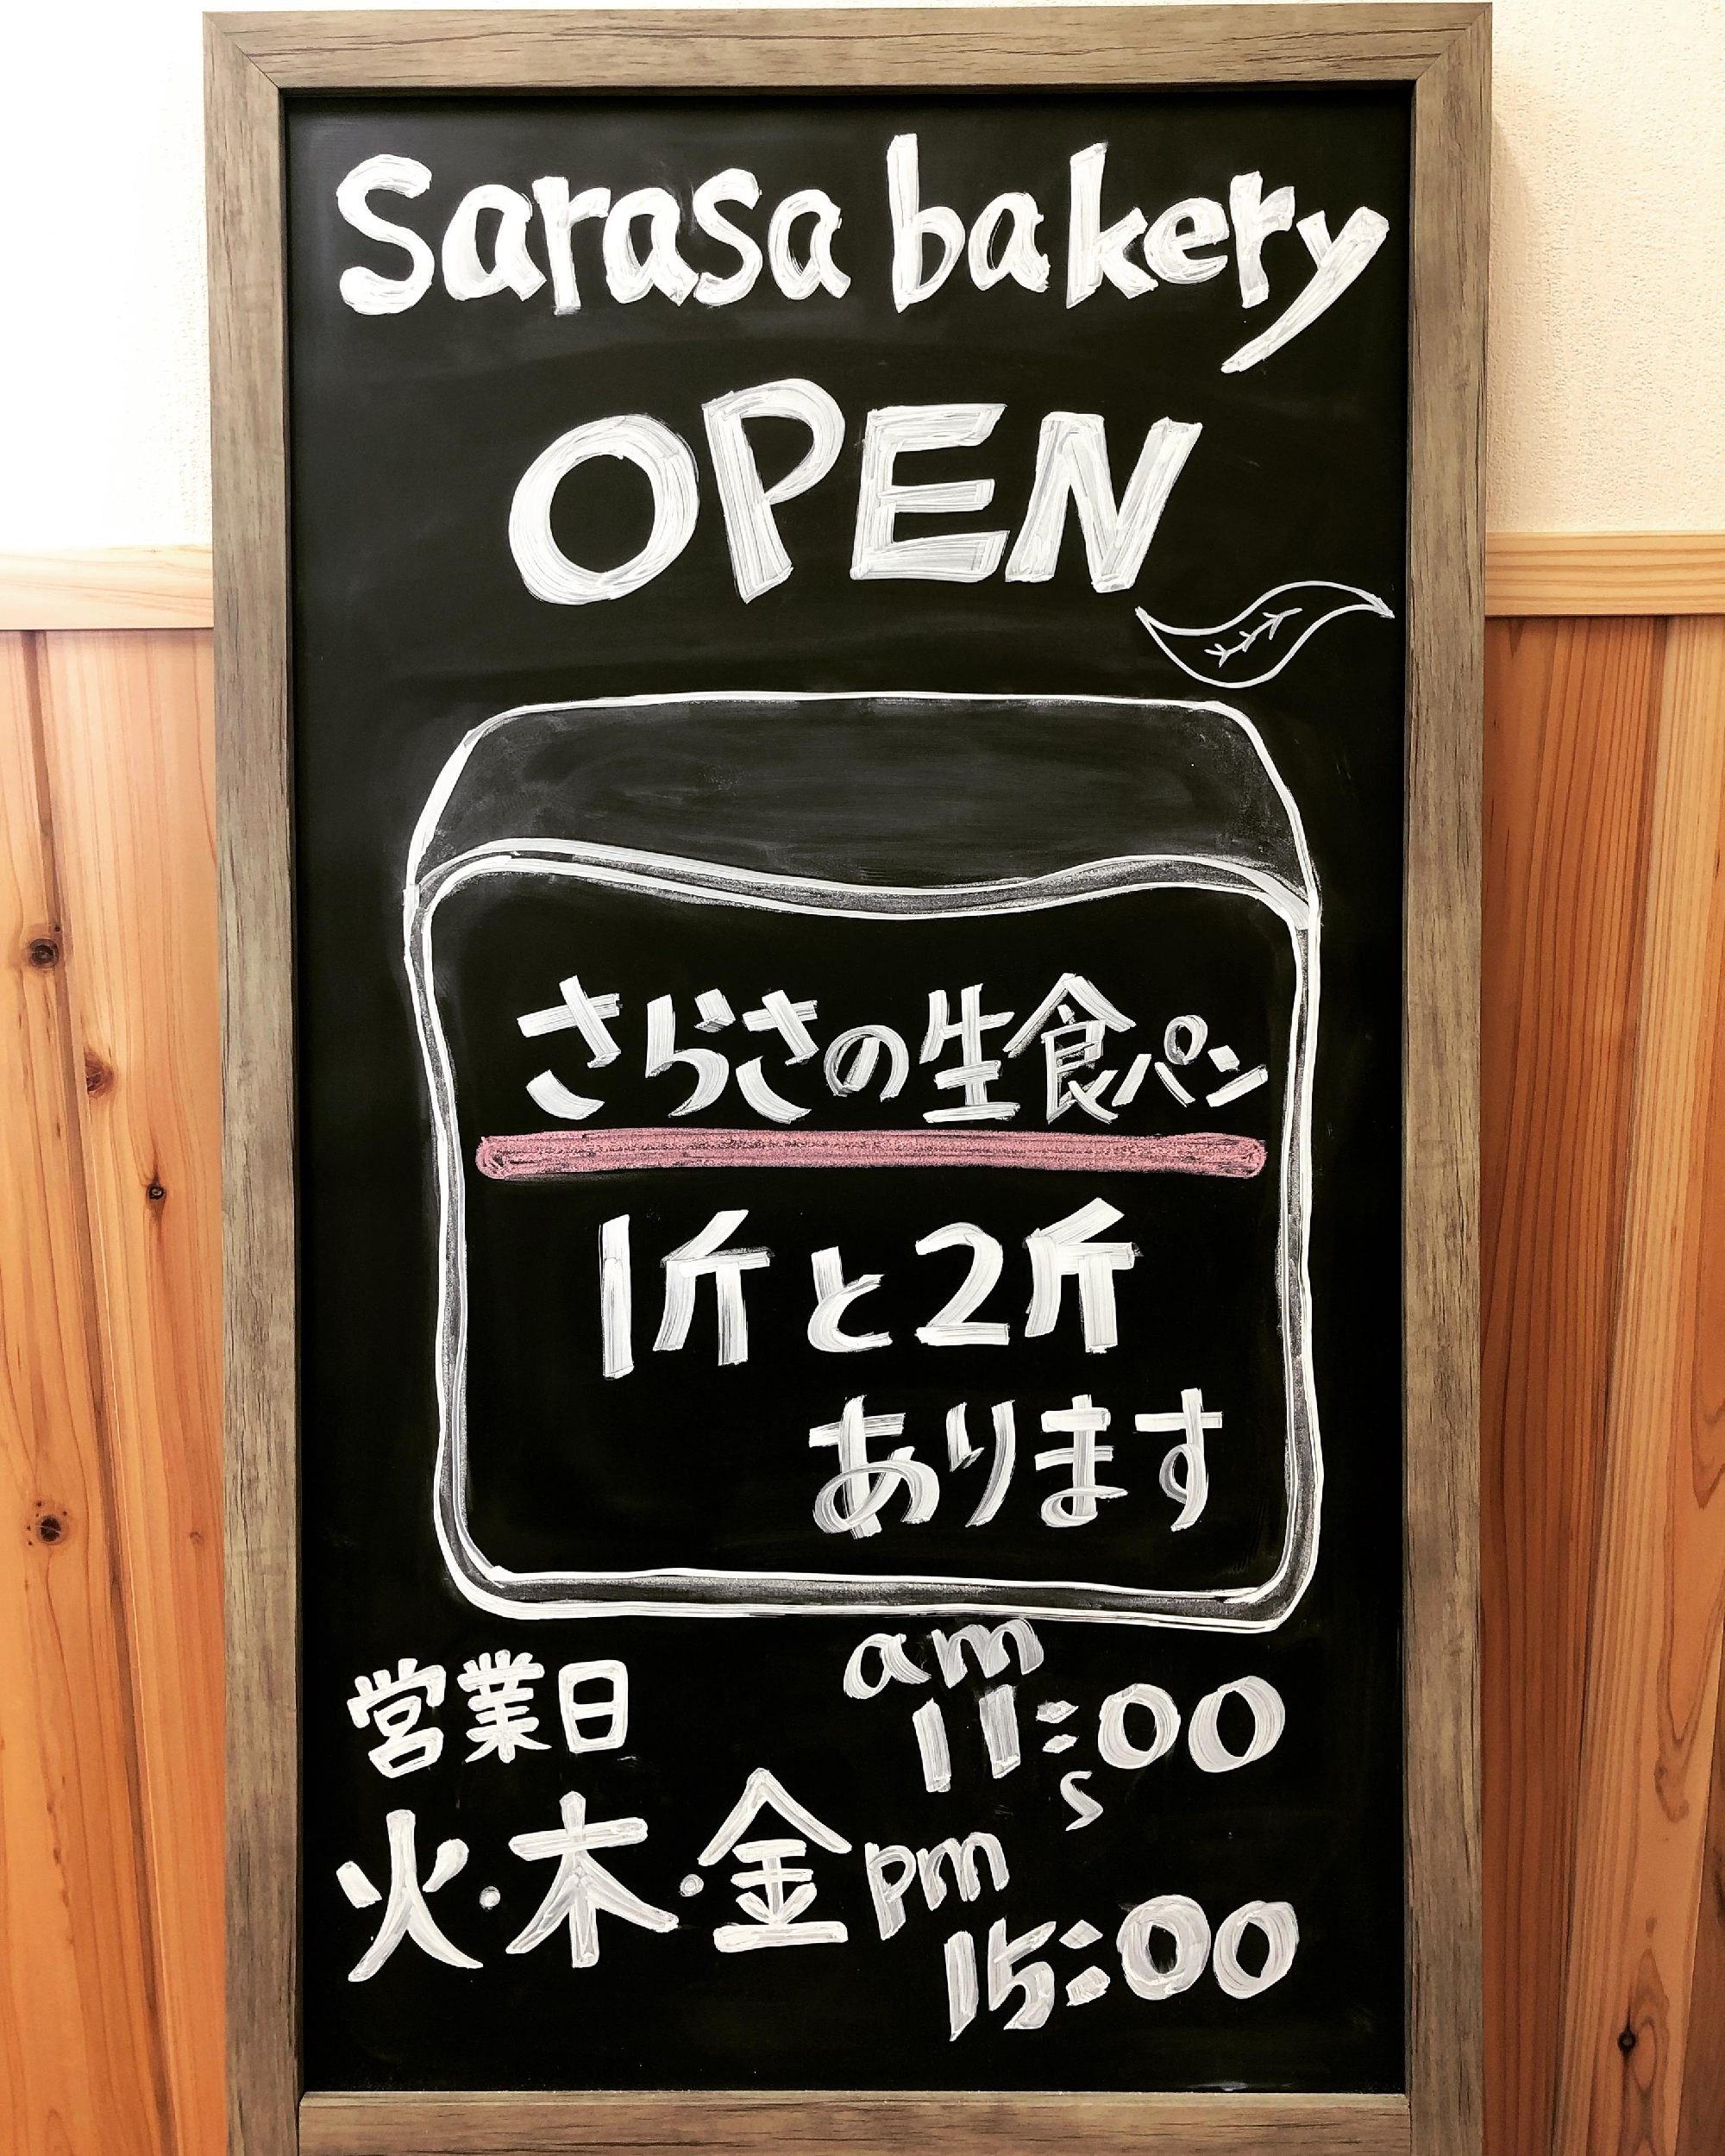 Sarasa bakery
OPEN
さらさの生食パン
1斤と2斤
あります
営業日
火・木・金
am
11:00
S
pm
15:00